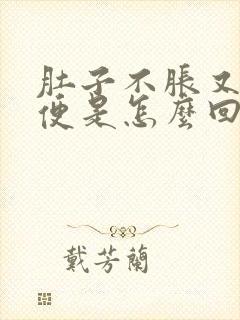 肚子不脹又
便是怎麼回
戴芳蘭